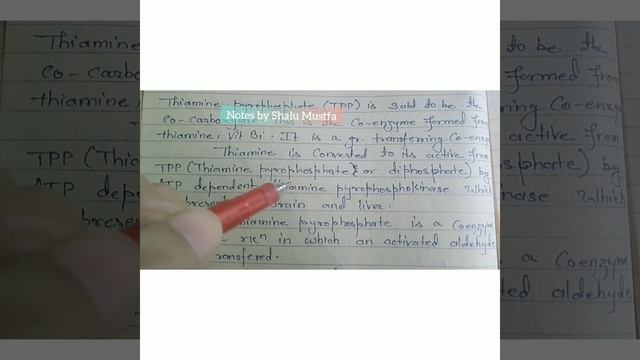 Thiamine pyrophosphate (TPP) is said to be the
Co-Carbo This is the Co-enzyme formed from
Notes by Shalu Mustfa
thiamine, Vit B1. It is a gr. transferring Co-enz
Thiamine is converted to its active from
TPP (Thiamine pyrophosphate) or diphosphate) by
ATP dependent thiamine pyrophosphokinase which
present brain and liver.
Thiamine pyrophosphate is a Coenzyme
rxn in which an activated aldehyde
transfered.